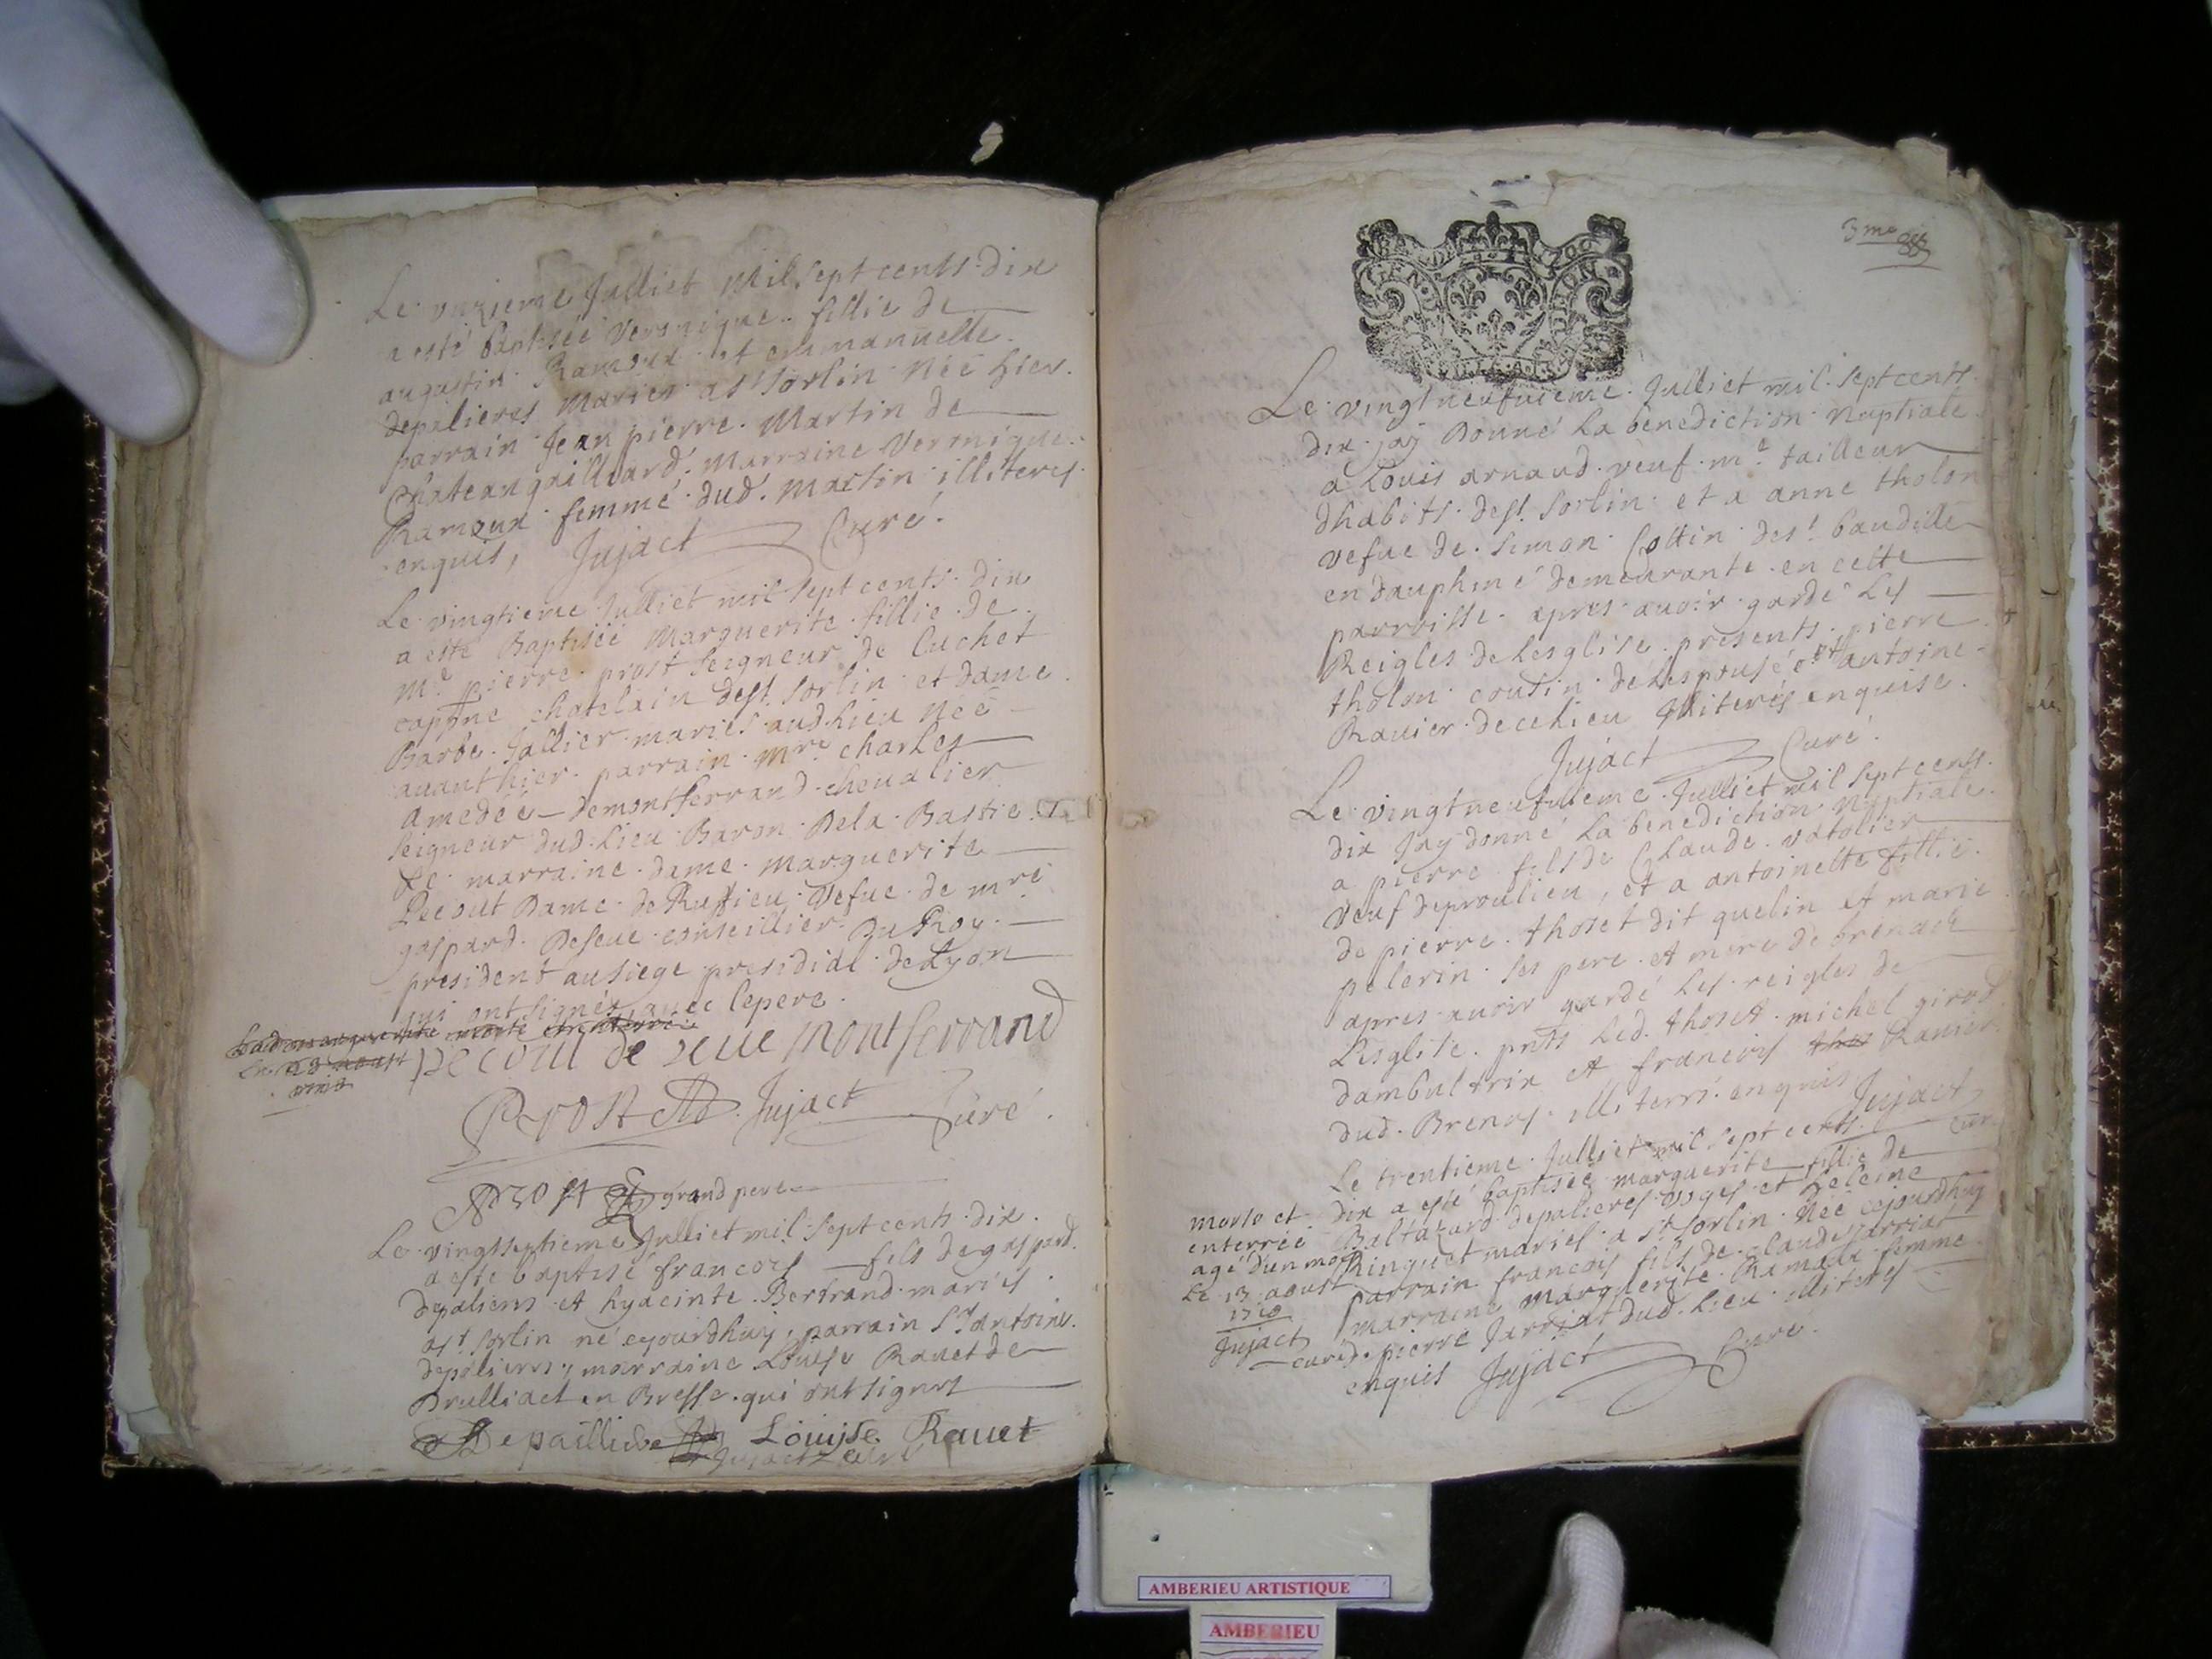 Le unzieme Julliet mil sept cents dix
a esté baptisée veronique fillie de
augustin Ramoux et emmanuelle
depalieres mariés a st sorlin Née hier.
parrain Jean pierre Martin de
Chateaugaillard. Marraine Veronique
Ramoux femme dud. Martin illiteres
enquis, Jujact Curé.
Le vingtieme Julliet mil sept cents dix
a esté Baptisée Marguerite fillie de
Me pierre prost seigneur de Cuchet
cappne chatelain de st sorlin et dame
Barbe Jallier mariés aud. lieu Née
auant hier. parrain mre charles
Amedée demontferrand cheualier
seigneur dud. lieu Baron Dela Bastie
marraine dame marguerite
Pecout Dame de Ruffieu Vefue de mre
gaspard Deseue conseillier Du Roy
president au siege presidial de Lyon
qui ont signés auec le pere.
pecout de seue montferrand
Prost Jujact Curé.
Prost grand pere
Le vingtseptieme Julliet mil sept cents dix
a esté baptisé francois fils de gaspard
depaliers et hyacinte Bertrand mariés
a st sorlin né ceyourdhuy, parrain Sr antoine
depaliers, marraine Louise Rauet de
Drulliact en Bresse qui ont signes
Depailliere Louijse Rauet
Jujact curé
3me
GEN D
Le vingtneufuieme Julliet mil sept cents
dix jay Donné La benediction Nuptiale
a Louis arnaud veuf me tailleur
dhabits de st. Sorlin et a anne tholon
vefue de simon Cottin de st baudille
en dauphiné demeurante en cette
parroisse apres auoir gardé Les
Reigles de Lesglise presents pierre
tholon cousin de Lespousée et antoine
Rauier de ce lieu Illiterés enquise.
Jujact Curé.
Le vingtneufuieme Julliet mil sept cents
dix Jay donné La benediction Nuptiale
a pierre fils de Claude vatolier
veuf deproulieu, et a antoinette fillie
de pierre thoset dit quelin et marie
pelerin ses pere et mere de brenod
apres auoir gardé Les reigles de
Lesglise. pnts Led. thoset michel girod
dambultrix et francois Rauier
dud. Brenos illiterré enquis Jujact
cur
Le trentieme Julliet mil sept cents
dix a esté baptisée marguerite fillie de
Baltazard depalieres et heleine
Ringuet mariés a st sorlin Née cejourdhuy
parrain francois fils de claude Jarriat
marraine marguerite Ramoux femme
de pierre Jarriat dud. lieu illiterés
enquis Jujact Curé.
morte et
enterrée
agé dun mois
Le 13 aoust
1710
Jujact
curé
AMBERIEU ARTISTIQUE
AMBERIEU